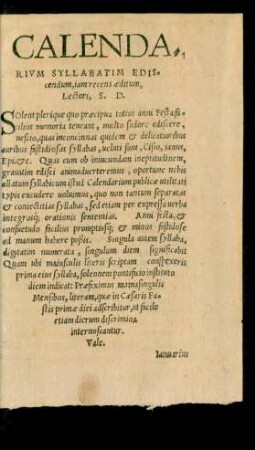 CALENDA,
RIVM SYLLABATIM EDIS
cendum, iam recens æditum,
Lectori, S. D.
SOlent plerique quo præcipua totius anni Festa fa
cilius memoria teneant, multo sudore ediscere,
nescio, quas inconcinnas quidem & delicatioribus
auribus fastidiosas syllabas, ueluti sunt, Cisio, ianus,
Epi, &c. Quas cum ob iniucundam ineptitudinem,
grauatim edisci animaduerteremus, oportune nobis
allatum syllabicum istud Calendarium publicæ utilitati
typis excudere uoluimus, quo non tantum separatas
& coniectitias syllabas, sed etiam per expressa uerba
integrasq; orationis sententias. Anni festa, &
consuetudo facilius promptiusq; & minus fastidose
ad manum habere possis. Singula autem syllaba,
digitatim numerata, singulum diem significabit
Quam ubi maiusculis literis scriptam conspexeris
prima eius syllaba, solennem pontificio instituto
diem indicat: Præfiximus mama singulis
Mensibus, literam, quæ in Cæsaris Fa
stis primæ diei adscribitur, ut facile
etiam dierum discrimina
internoscantur.
Vale.
Ianuarius